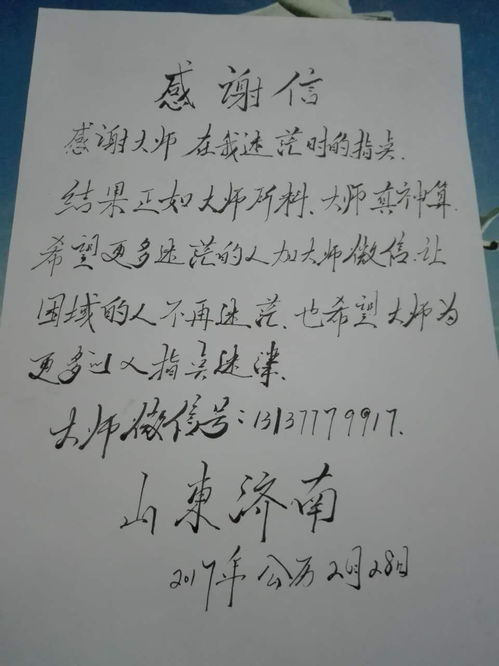 感谢信
感谢大师在我迷茫时的指点.
结果正如大师所料、大师真神算.
希望更多迷茫的人加大师微信.让
困域的人不再迷茫、也希望大师为
更多的人指点迷津.
大师微信号:13137779917.
山東济南
2017年公历2月28日